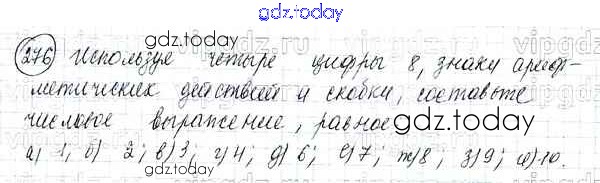 gdz.today
276 Используя четыре цифры 8, знаки ариф-
gdz.today
метических действий и скобки, составьте
числовое выражение, равное
gdz.today
а) 1, б) 2; в) 3; г) 4; д) 6; е) 7; ж) 8; з) 9; и) 10.